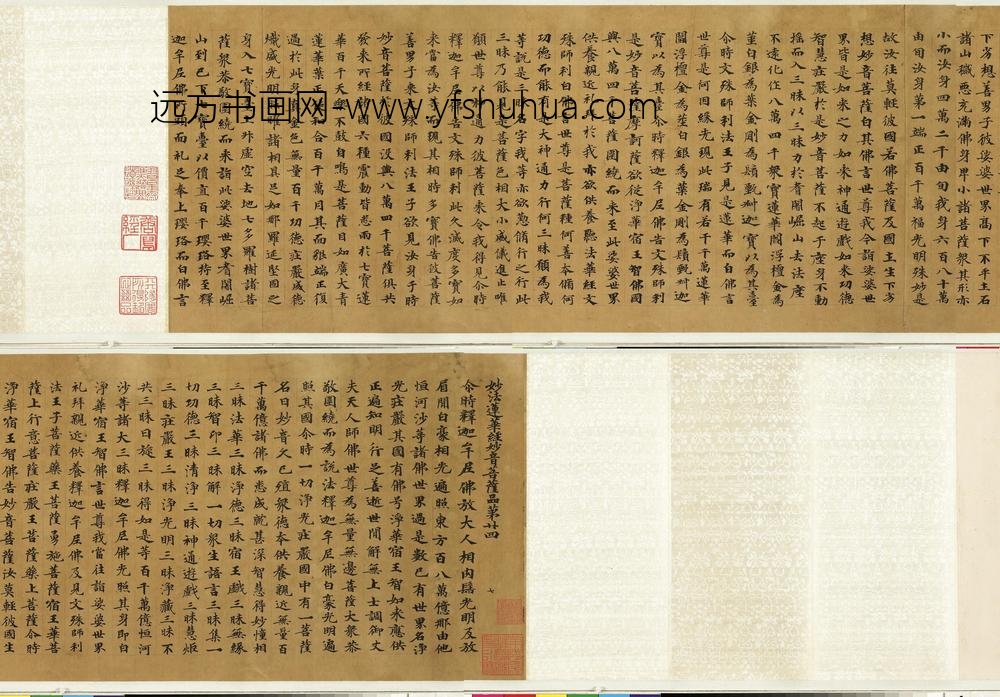 妙法蓮華經妙音菩薩品第廿四
尒時釋迦牟尼佛放大人相肉髻光明及放
眉間白豪相光遍照東方百八萬億那由他
恒河沙等諸佛世界過是數已有世界名淨
光莊嚴其國有佛号淨華宿王智如來應供
正遍知明行足善逝世間解無上士調御丈
夫天人師佛世尊為無量無邊菩薩大眾恭
敬圍繞而為說法釋迦牟尼佛白豪光明遍
照其國尒時一切淨光莊嚴國中有一菩薩
名曰妙音久已殖眾德本供養親近無量百
千萬億諸佛而悉成就甚深智慧得妙幢相
三昧法華三昧淨德三昧宿王戲三昧無緣
三昧智印三昧解一切眾生語言三昧集一
切功德三昧清淨三昧神通遊戲三昧慧炬
三昧莊嚴王三昧淨光明三昧淨藏三昧不
共三昧日旋三昧得如是等百千萬億恒河
沙等諸大三昧釋迦牟尼佛光照其身即白
淨華宿王智佛言世尊我當往詣娑婆世界
礼拜親近供養釋迦牟尼佛及見文殊師利
法王子菩薩藥王菩薩勇施菩薩宿王華菩
薩上行意菩薩莊嚴王菩薩藥上菩薩尒時
淨華宿王智佛告妙音菩薩汝莫輕彼國生
下劣想善男子彼娑婆世界高下不平土石
諸山穢惡充滿佛身卑小諸菩薩眾其形亦
小而汝身四萬二千由旬我身六百八十萬
由旬汝身第一端正百千萬福光明殊妙是
故汝往莫輕彼國若佛菩薩及國土生下劣
想妙音菩薩白其佛言世尊我今詣娑婆世
界皆是如來之力如來神通遊戲如來功德
智慧莊嚴於是妙音菩薩不起于座身不動
搖而入三昧以三昧力於耆闍崛山去法座
不遠化作八萬四千眾寶蓮華閻浮檀金為
莖白銀為葉金剛為鬚甄叔迦寶以為其臺
尒時文殊師利法王子見是蓮華而白佛言
世尊是何因緣先現此瑞有若千千萬蓮華
閻浮檀金為莖白銀為葉金剛為鬚甄叔迦
寶以為其臺尒時釋迦牟尼佛告文殊師利
是妙音菩薩摩訶薩欲從淨華宿王智佛國
與八萬四千菩薩圍繞而來至此娑婆世界
供養親近礼拜於我亦欲供養聽法華經文
殊師利白佛言世尊是菩薩種何善本脩何
功德而能有是大神通力行何三昧願為我
等說是三昧名字我等亦欲懃脩行之行此
三昧乃能見是菩薩色相大小威儀進止唯
願世尊以神通力彼菩薩來令我得見尒時
釋迦牟尼佛告文殊師利此久滅度多寶如
來當為汝等而現其相時多寶佛告彼菩薩
善男子來文殊師利法王子欲見汝身于時
妙音菩薩於彼國沒與八萬四千菩薩俱共
發來所經諸國六種震動皆悉雨於七寶蓮
華百千天樂不鼓自鳴是菩薩目如廣大青
蓮華葉正使和合百千萬月其面貌端正復
過於此身真金色無量百千功德莊嚴威德
熾盛光明照耀諸相具足如那羅延堅固之
身入七寶臺上昇虛空去地七多羅樹諸菩
薩眾恭敬圍繞而來詣此娑婆世界耆闍崛
山到已下七寶臺以價直百千瓔珞持至釋
迦牟尼佛所頭面礼足奉上瓔珞而白佛言
远方书画网-www.yfshuhua.com